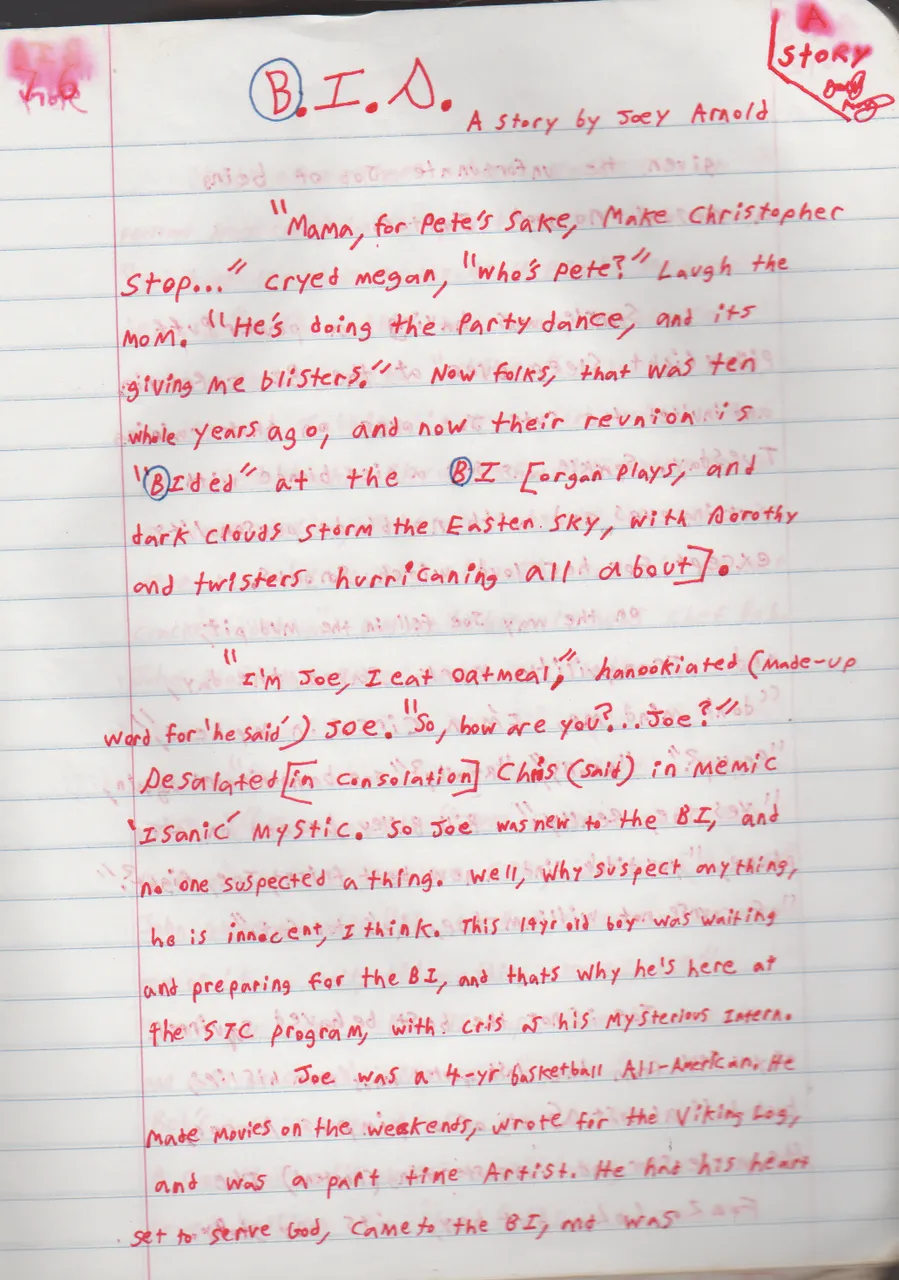 A
STORY
B.I.S.
A story by Joey Arnold
"Mama, for Pete's sake, Make Christopher
Stop..." cryed megan, "Who's pete?" Laugh the
Mom. "He's doing the Party dance, and its
giving me blisters." Now folks, that was ten
whole years ago, and now their reunion is
"BIded" at the BI [organ plays, and
dark clouds storm the Easten sky, with Dorothy
and twisters hurricaning all about].
"I'm Joe, I eat oatmeal," hanookiated (Made-up
word for 'he said') Joe. "So, how are you?...Joe?"
Desalated [in consolation] Chris (said) in memic
'Isanic' Mystic. So Joe was new to the BI, and
no one suspected a thing. Well, Why suspect anything,
he is innocent, I think. This 19yr old boy was waiting
and preparing for the BI, and thats why he's here at
the STC program, with cris as his Mysterious Intern.
Joe was a 4-yr basketball All-American. He
Made Movies on the weekends, wrote for the Viking Log,
and was a part time Artist. He had his heart
set to serve God, came to the BI, and was